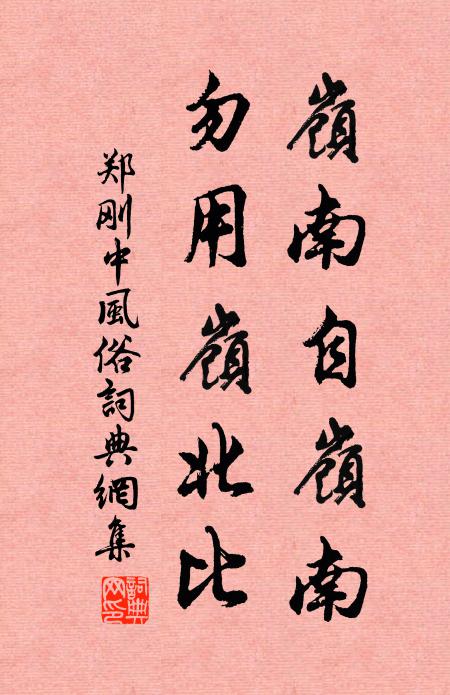 嶺南自嶺南
勿用嶺北比
郑刚中風俗詞典網集
詞典网印